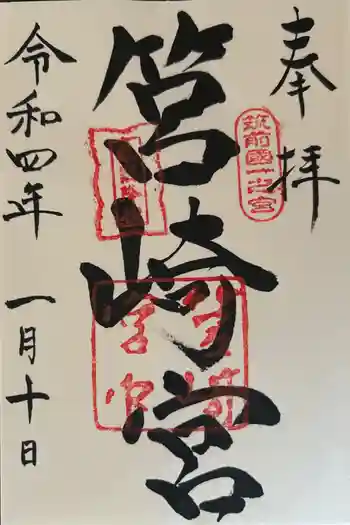 奉拝
筑前國一之宮
筥崎宮
令和四年 一月十日